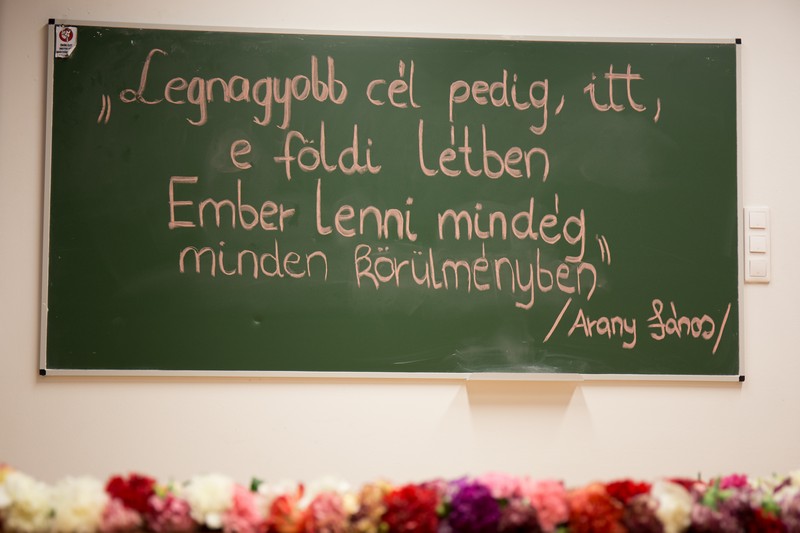 „Legnagyobb cél pedig, itt,
e földi létben
Ember lenni mindég,
minden körülményben”
/Arany János/